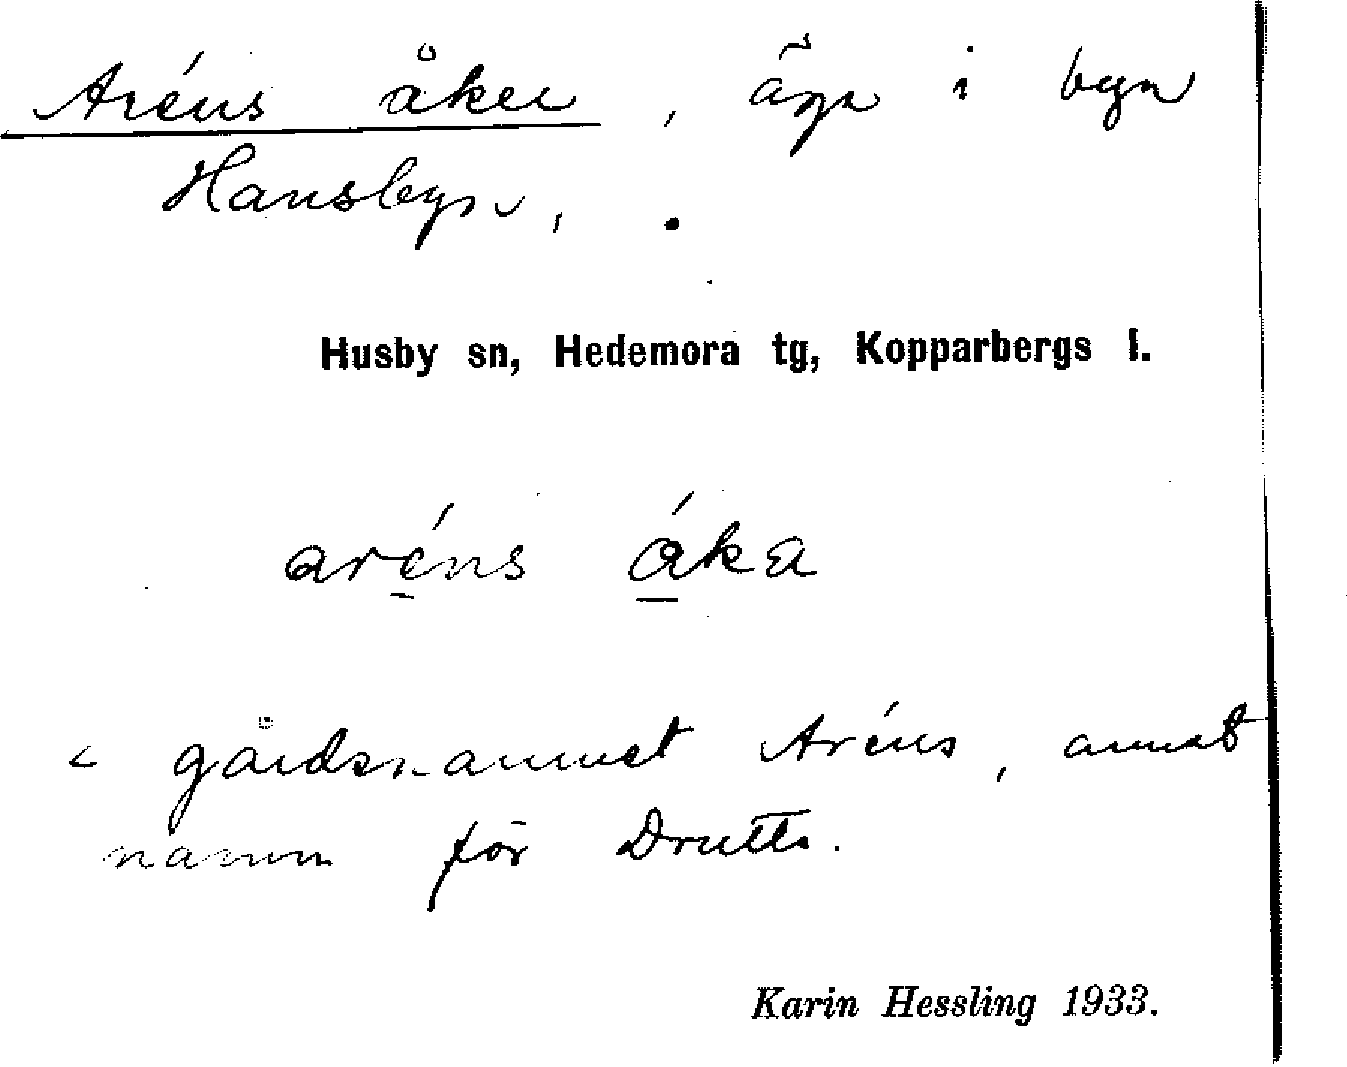 Aréns åker, äga i byn
Hansbyn,.
Husby sn, Hedemora tg, Kopparbergs l.
aréns åka
< gårdsnamnet Aréns, annat
namn för Drutts.
Karin Hessling 1933.